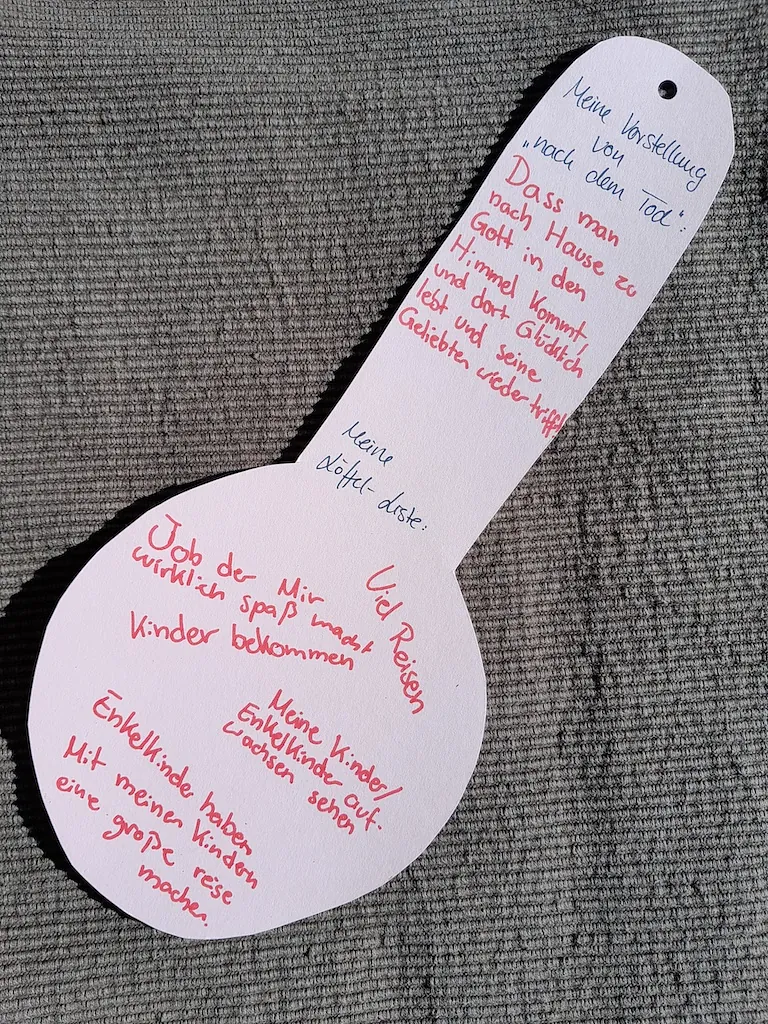 Meine Vorstellung
von
„nach dem Tod“:
Dass man
nach Hause zu
Gott in den
Himmel kommt,
und dort Glücklich
lebt und seine
Geliebten wieder trifft!
Meine
Löffel-Liste:
Job der Mir
wirklich spaß macht
Viel Reisen
Kinder bekommen
Meine Kinder/
Enkelkinder auf-
wachsen sehen
Enkelkinder haben
Mit meinen Kindern
eine große reise
machen.